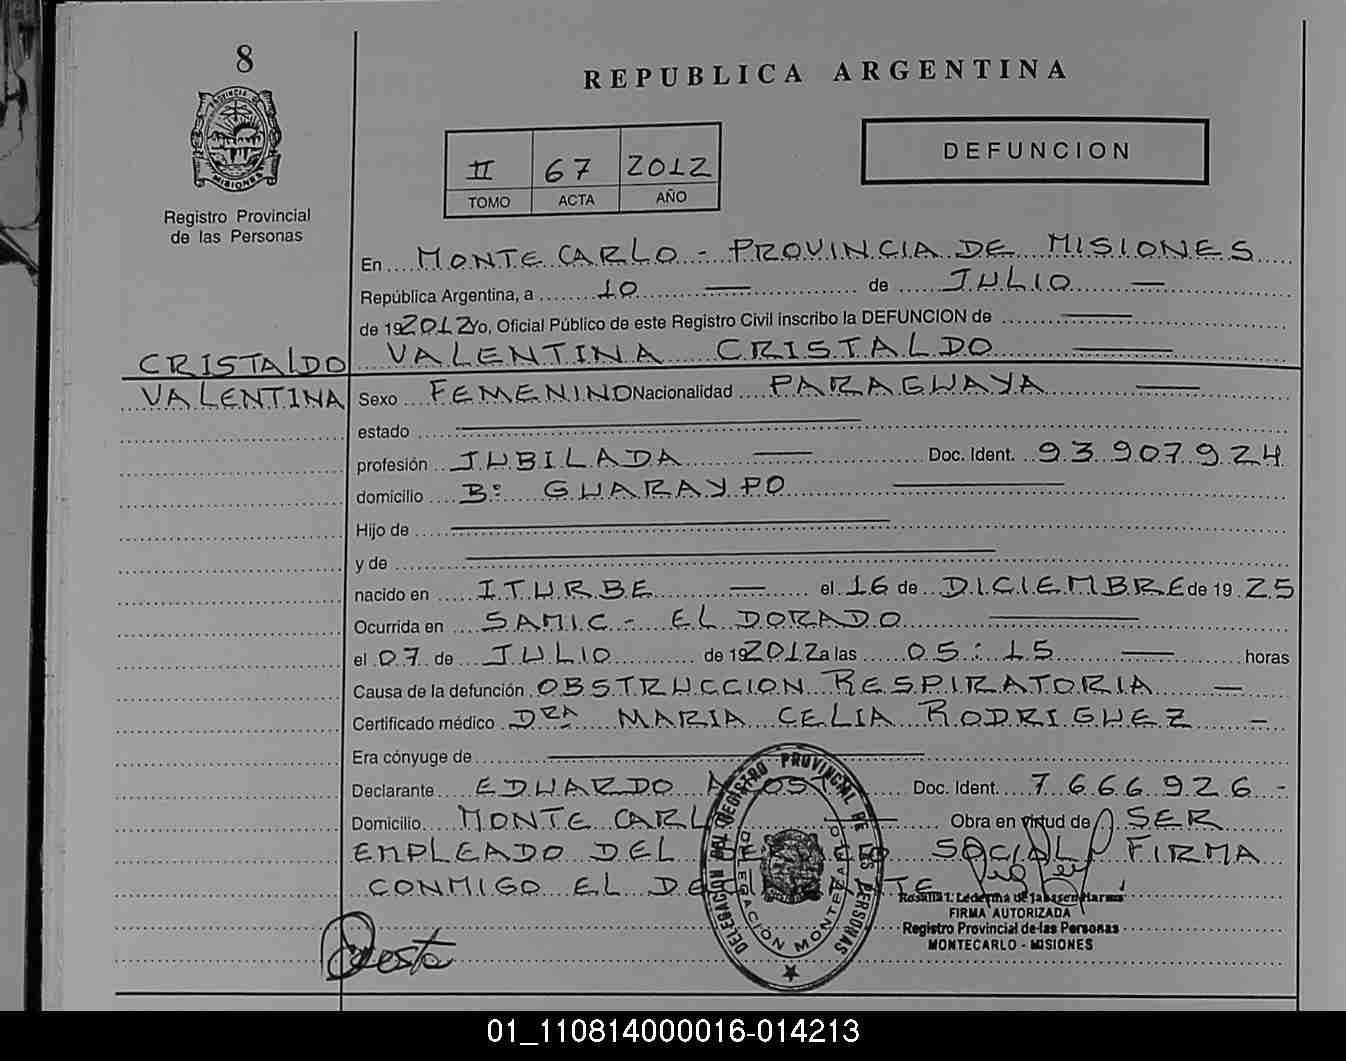 8
REPUBLICA ARGENTINA
PROVINCIA DE
MISIONES
Registro Provincial
de las Personas
II 67 2012
TOMO ACTA AÑO
DEFUNCION
En MONTECARLO - PROVINCIA DE MISIONES
República Argentina, a 10 de JULIO
de 192012 Yo, Oficial Público de este Registro Civil inscribo la DEFUNCION de
CRISTALDO VALENTINA CRISTALDO
VALENTINA Sexo FEMENINO Nacionalidad PARAGUAYA
estado
profesión JUBILADA Doc. Ident. 93 907 924
domicilio Bº GUARAYPO
Hijo de
y de
nacido en ITURBE el 16 de DICIEMBRE de 19 25
Ocurrida en SAMIC - EL DORADO
el 07 de JULIO de 192012 a las 05:15 horas
Causa de la defunción OBSTRUCCION RESPIRATORIA
Certificado médico DRA MARIA CELIA RODRIGUEZ
Era cónyuge de
Declarante EDUARDO Doc. Ident. 7 666 926 -
Domicilio MONTE CARL Obra en virtud de SER
EMPLEADO DEL SOCIAL FIRMA
CONMIGO EL
DELEGACION DEL REGISTRO PROVINCIAL DE LAS PERSONAS
DELEGACIÓN MONTECARLO
FIRMA AUTORIZADA
Registro Provincial de las Personas
MONTECARLO - MISIONES
01_110814000016-014213